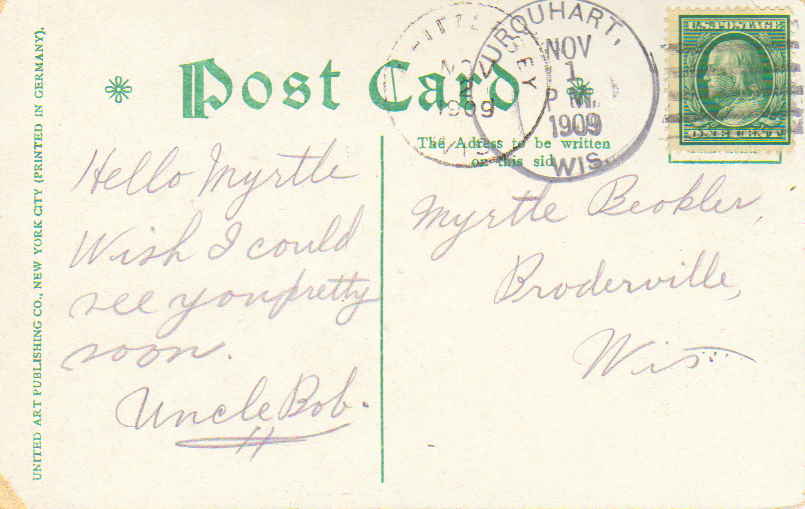 UNITED ART PUBLISHING CO., NEW YORK CITY (PRINTED IN GERMANY).
Post Card
The Adress to be written
on this sid
URQUHART,
NOV
1
P M.
1909
WIS.
1909
U.S. POSTAGE
ONE CENT
Hello Myrtle
Wish I could
see you pretty
soon.
Uncle Bob.
Myrtle Beokler,
Broderville,
Wis.